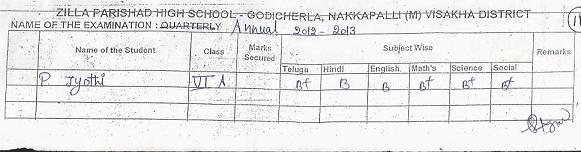 ZILLA PARISHAD HIGH SCHOOL - GODICHERLA, NAKKAPALLI (M) VISAKHA DISTRICT
NAME OF THE EXAMINATION : QUARTERLY Annual 2012 - 2013
Name of the Student Class Marks Secured Subject Wise Remarks
Telugu Hindi English. Math's Science Social
P. Jyothi VI A B+ B B B+ B+ B+